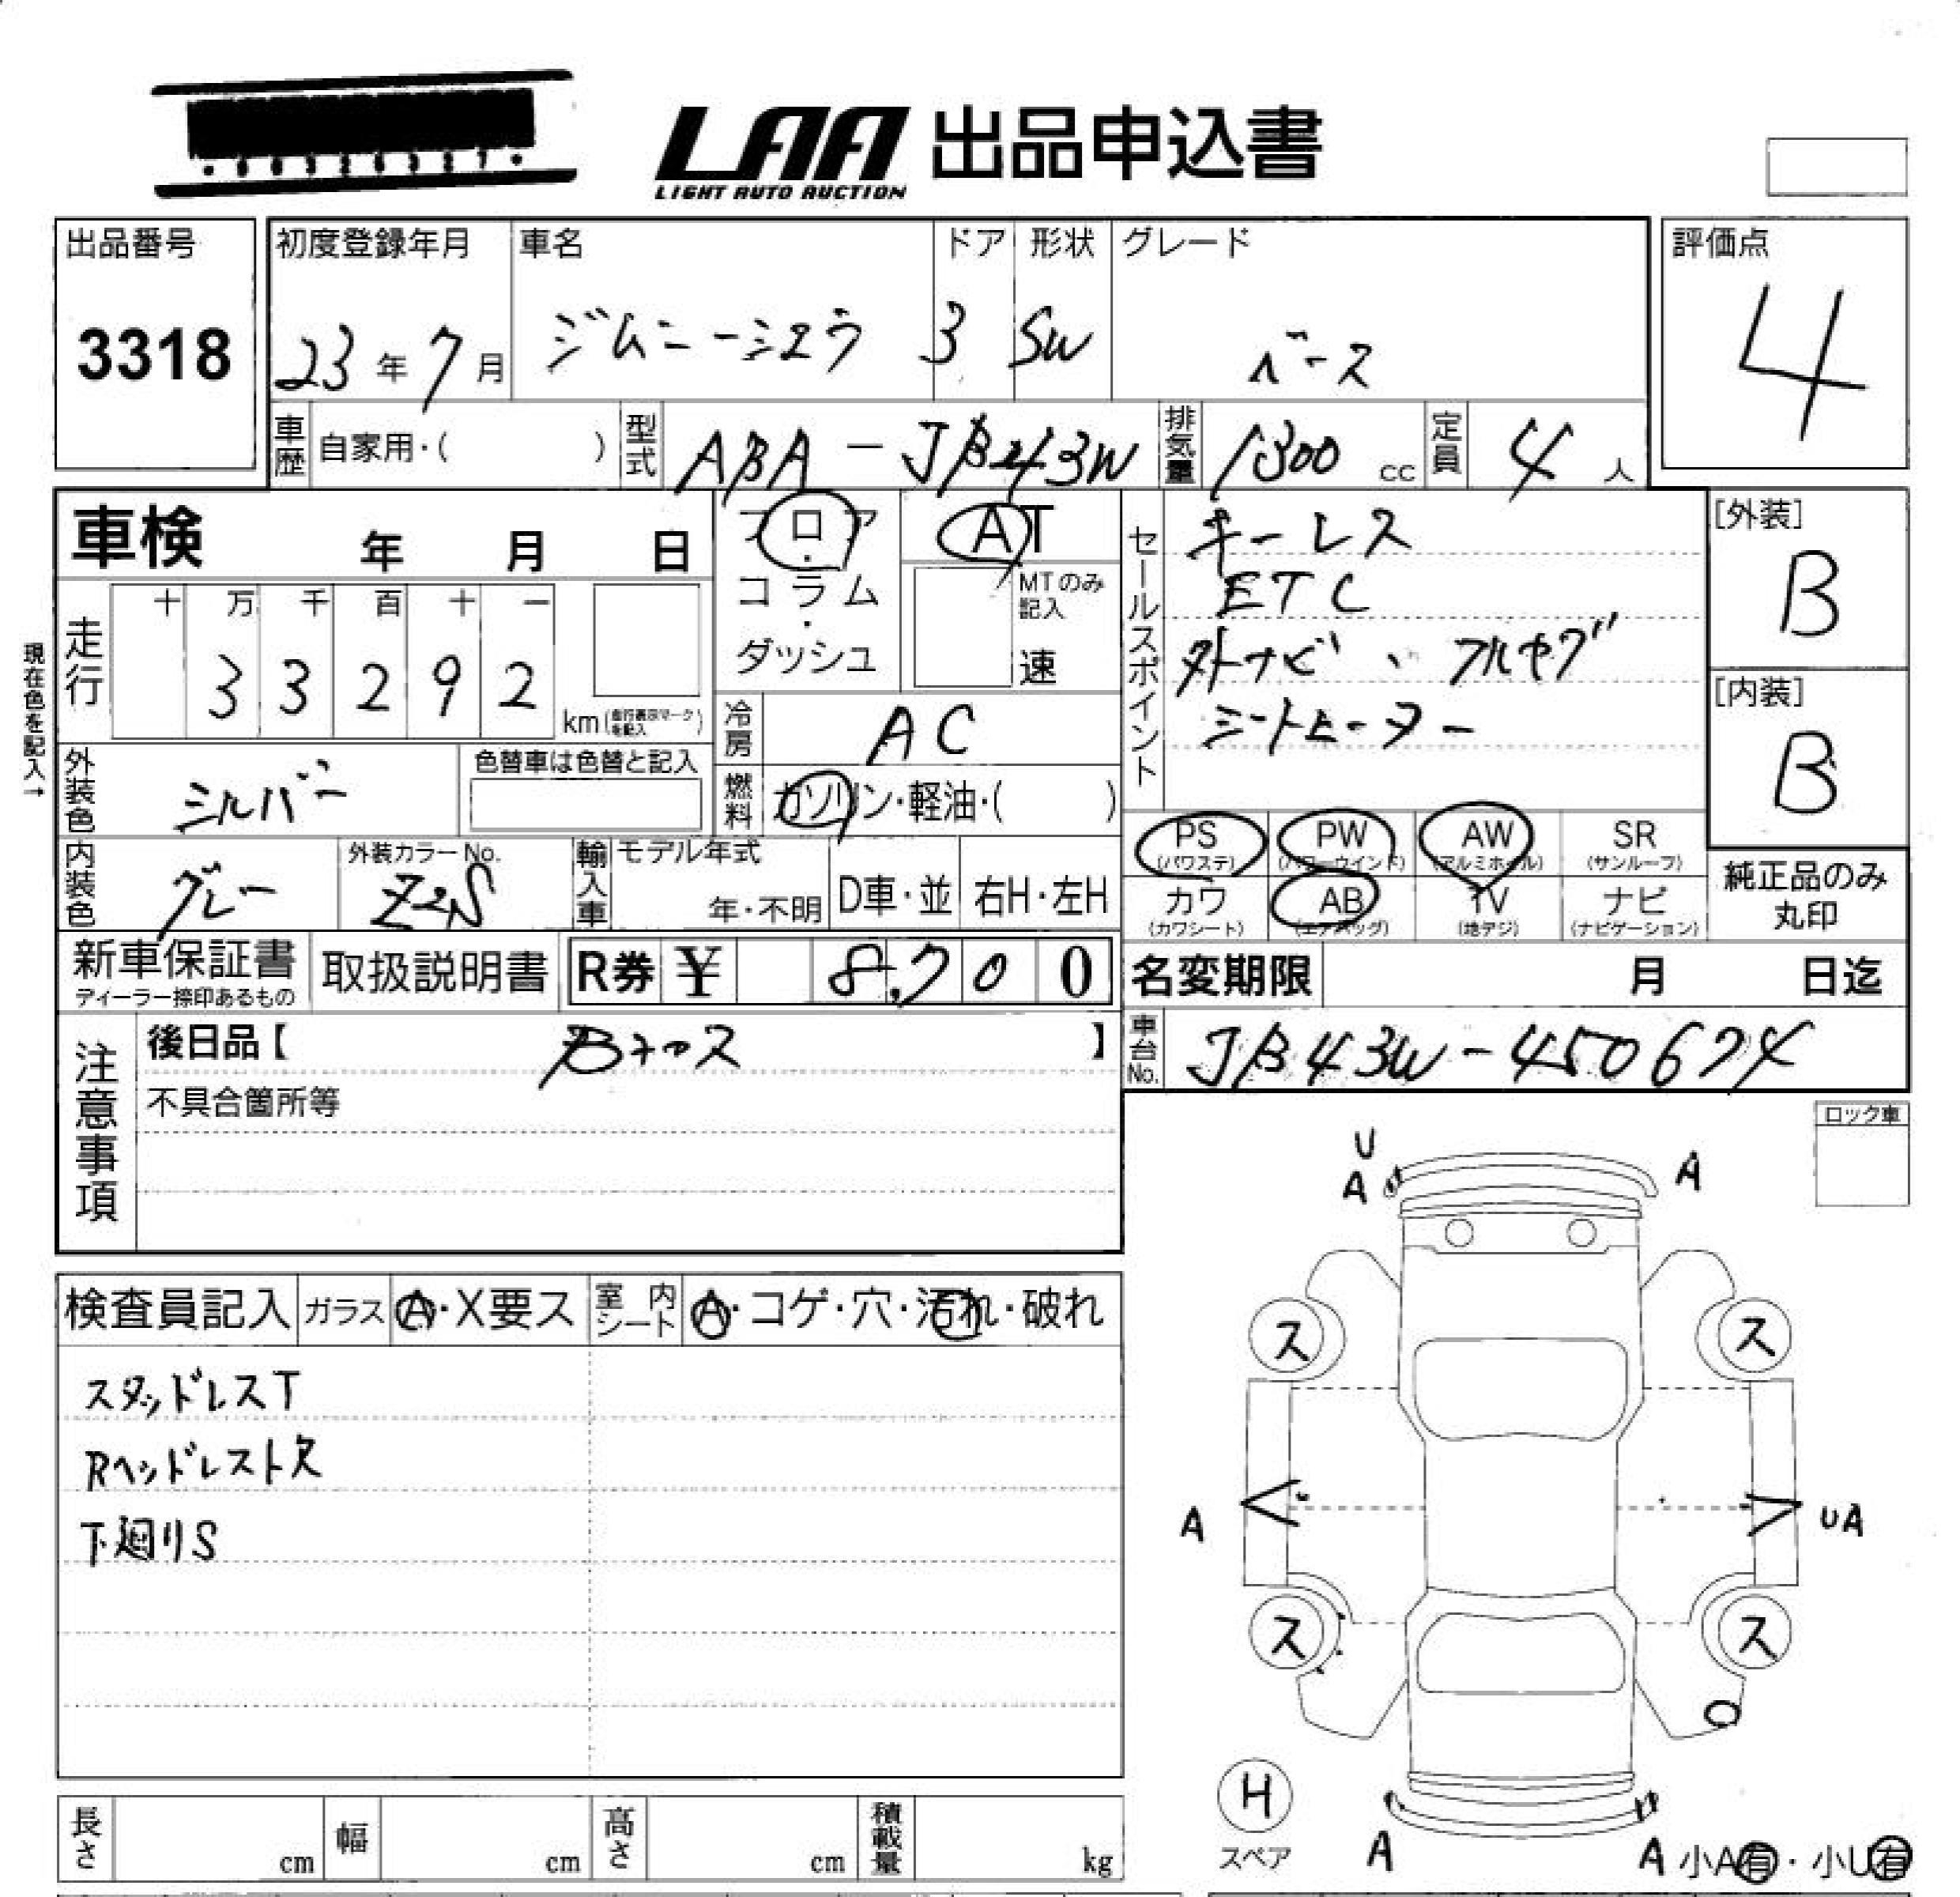 LAA 出品申込書
LIGHT AUTO AUCTION
出品番号 3318
初度登録年月 23年 7月
車名 ジムニーシエラ
ドア 3
形状 SW
グレード ベース
評価点 4
車歴 自家用・( )
型式 ABA-JB43W
排気量 1300 cc
定員 4 人
車検 年 月 日
フロア・コラム・ダッシュ
AT
MTのみ記入
速
セールスポイント
キーレス
ETC
外ナビ、フルセグ
シートヒーター
[外装] B
[内装] B
現在色を記入→
走行 十 万 千 百 十 一
3 3 2 9 2 km(走行表示マークを記入)
冷房 AC
燃料 ガソリン・軽油・( )
外装色 シルバー
色替車は色替と記入
内装色 グレー
外装カラーNo. Z2S
輸入車 モデル年式 年・不明 D車・並 右H・左H
PS (パワステ) PW (パワーウインド) AW (アルミホイール) SR (サンルーフ)
カワ (カワシート) AB (エアバッグ) TV (地デジ) ナビ (ナビゲーション)
純正品のみ丸印
新車保証書 ディーラー捺印あるもの
取扱説明書
R券 ¥ 8,700
名変期限 月 日迄
車台No. JB43W-450674
注意事項
後日品【 】
不具合箇所等
ロック車
U
A A
ス ス
A UA
ス ス
H
スペア
A A 小A有・小U有
検査員記入 ガラス A・X要ス 室内シート A・コゲ・穴・汚れ・破れ
スタッドレスT
Rヘッドレスト欠
下廻りS
長さ cm 幅 cm 高さ cm 積載量 kg